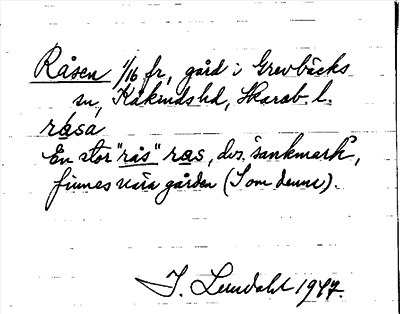 Råsen 1/16 fr, gård i Grevbäcks
sn, Kåkinds hd, Skarab. l.
råsa
En stor "rås" ras, dvs. "sankmark",
finnes nära gården (S om denne).
I. Lundahl 1947.